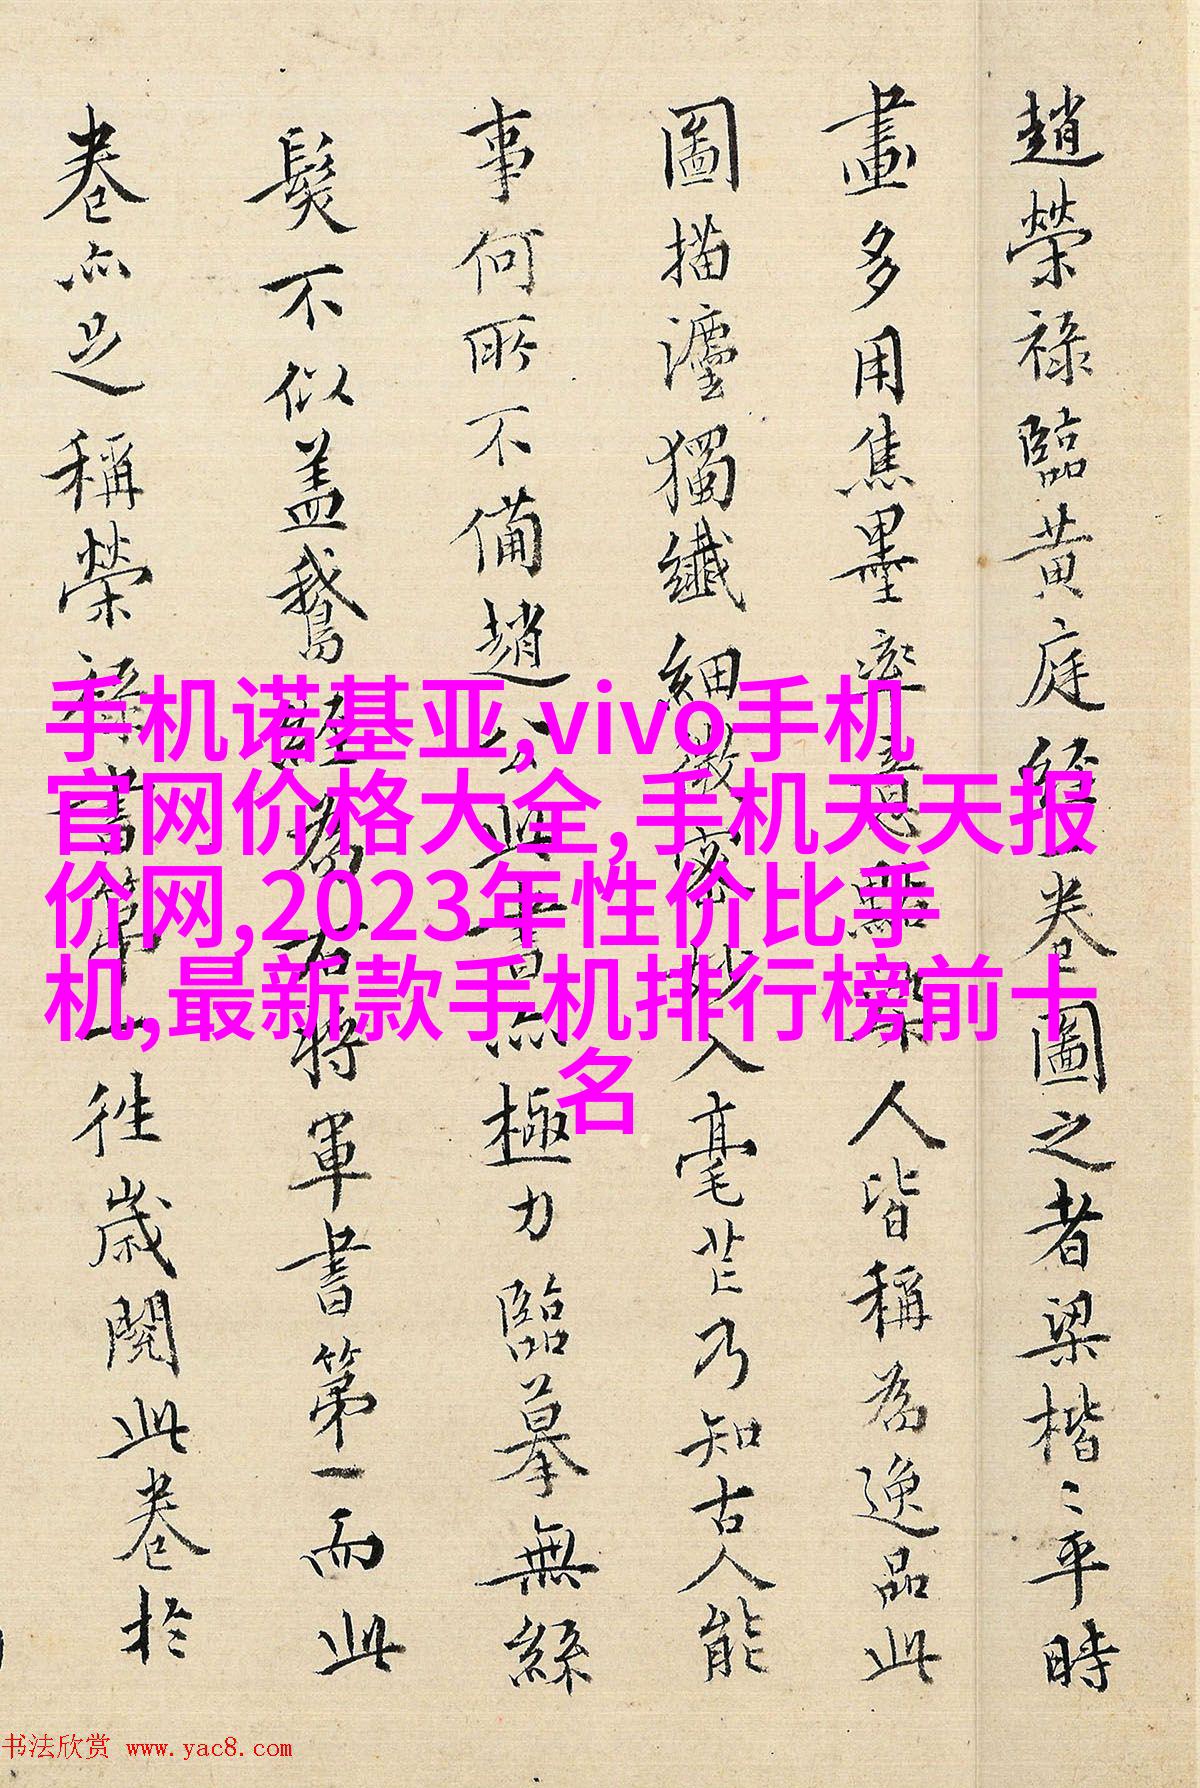 趙榮祿臨黄庭經卷圖之者梁楷〻平時
畫多用焦墨率意點人皆稱為逸品此
圖描灋獨纖細微密妙入毫芒乃知古人能
事何所不備趙公此書亦極力臨摹無絲
髮不似盖鵝經為右將軍書第一而此
卷亦足稱榮祿書第一往歲閱此卷於
手机诺基亚,vivo手机
官网价格大全,手机天天报
价网,2023年性价比手
机,最新款手机排行榜前十
名
书法欣赏 www.yac8.com